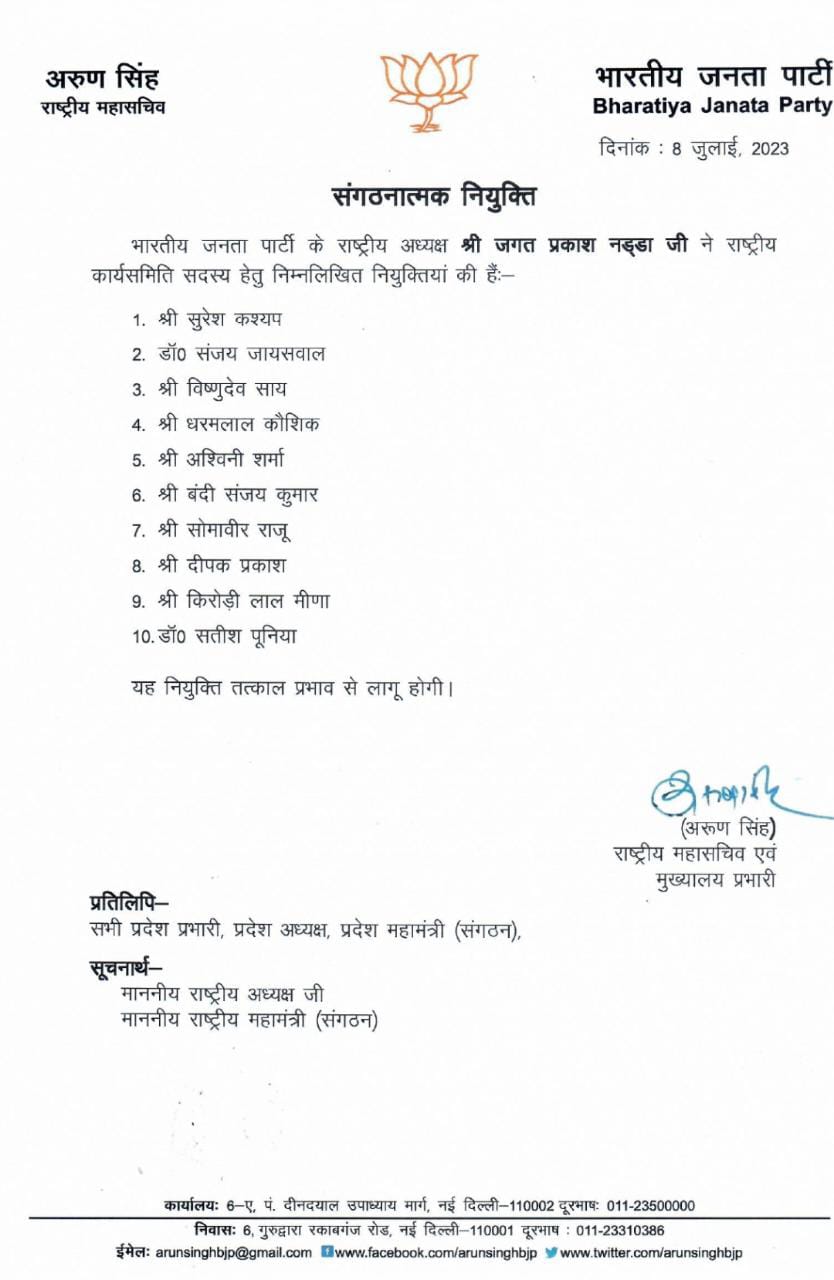 अरुण सिंह
राष्ट्रीय महासचिव
भारतीय जनता पार्टी
Bharatiya Janata Party
दिनांक : 8 जुलाई, 2023
संगठनात्मक नियुक्ति
भारतीय जनता पार्टी के राष्ट्रीय अध्यक्ष श्री जगत प्रकाश नड्डा जी ने राष्ट्रीय
कार्यसमिति सदस्य हेतु निम्नलिखित नियुक्तियां की हैं:–
1. श्री सुरेश कश्यप
2. डॉ0 संजय जायसवाल
3. श्री विष्णुदेव साय
4. श्री धरमलाल कौशिक
5. श्री अश्विनी शर्मा
6. श्री बंदी संजय कुमार
7. श्री सोमावीर राजू
8. श्री दीपक प्रकाश
9. श्री किरोड़ी लाल मीणा
10. डॉ0 सतीश पूनिया
यह नियुक्ति तत्काल प्रभाव से लागू होगी।
(अरूण सिंह)
राष्ट्रीय महासचिव एवं
मुख्यालय प्रभारी
प्रतिलिपि–
सभी प्रदेश प्रभारी, प्रदेश अध्यक्ष, प्रदेश महामंत्री (संगठन),
सूचनार्थ–
माननीय राष्ट्रीय अध्यक्ष जी
माननीय राष्ट्रीय महामंत्री (संगठन)
कार्यालयः 6–ए, पं. दीनदयाल उपाध्याय मार्ग, नई दिल्ली–110002 दूरभाषः 011-23500000
निवासः 6, गुरुद्वारा रकाबगंज रोड, नई दिल्ली–110001 दूरभाष : 011-23310386
ईमेलः arunsinghbjp@gmail.com www.facebook.com/arunsinghbjp www.twitter.com/arunsinghbjp